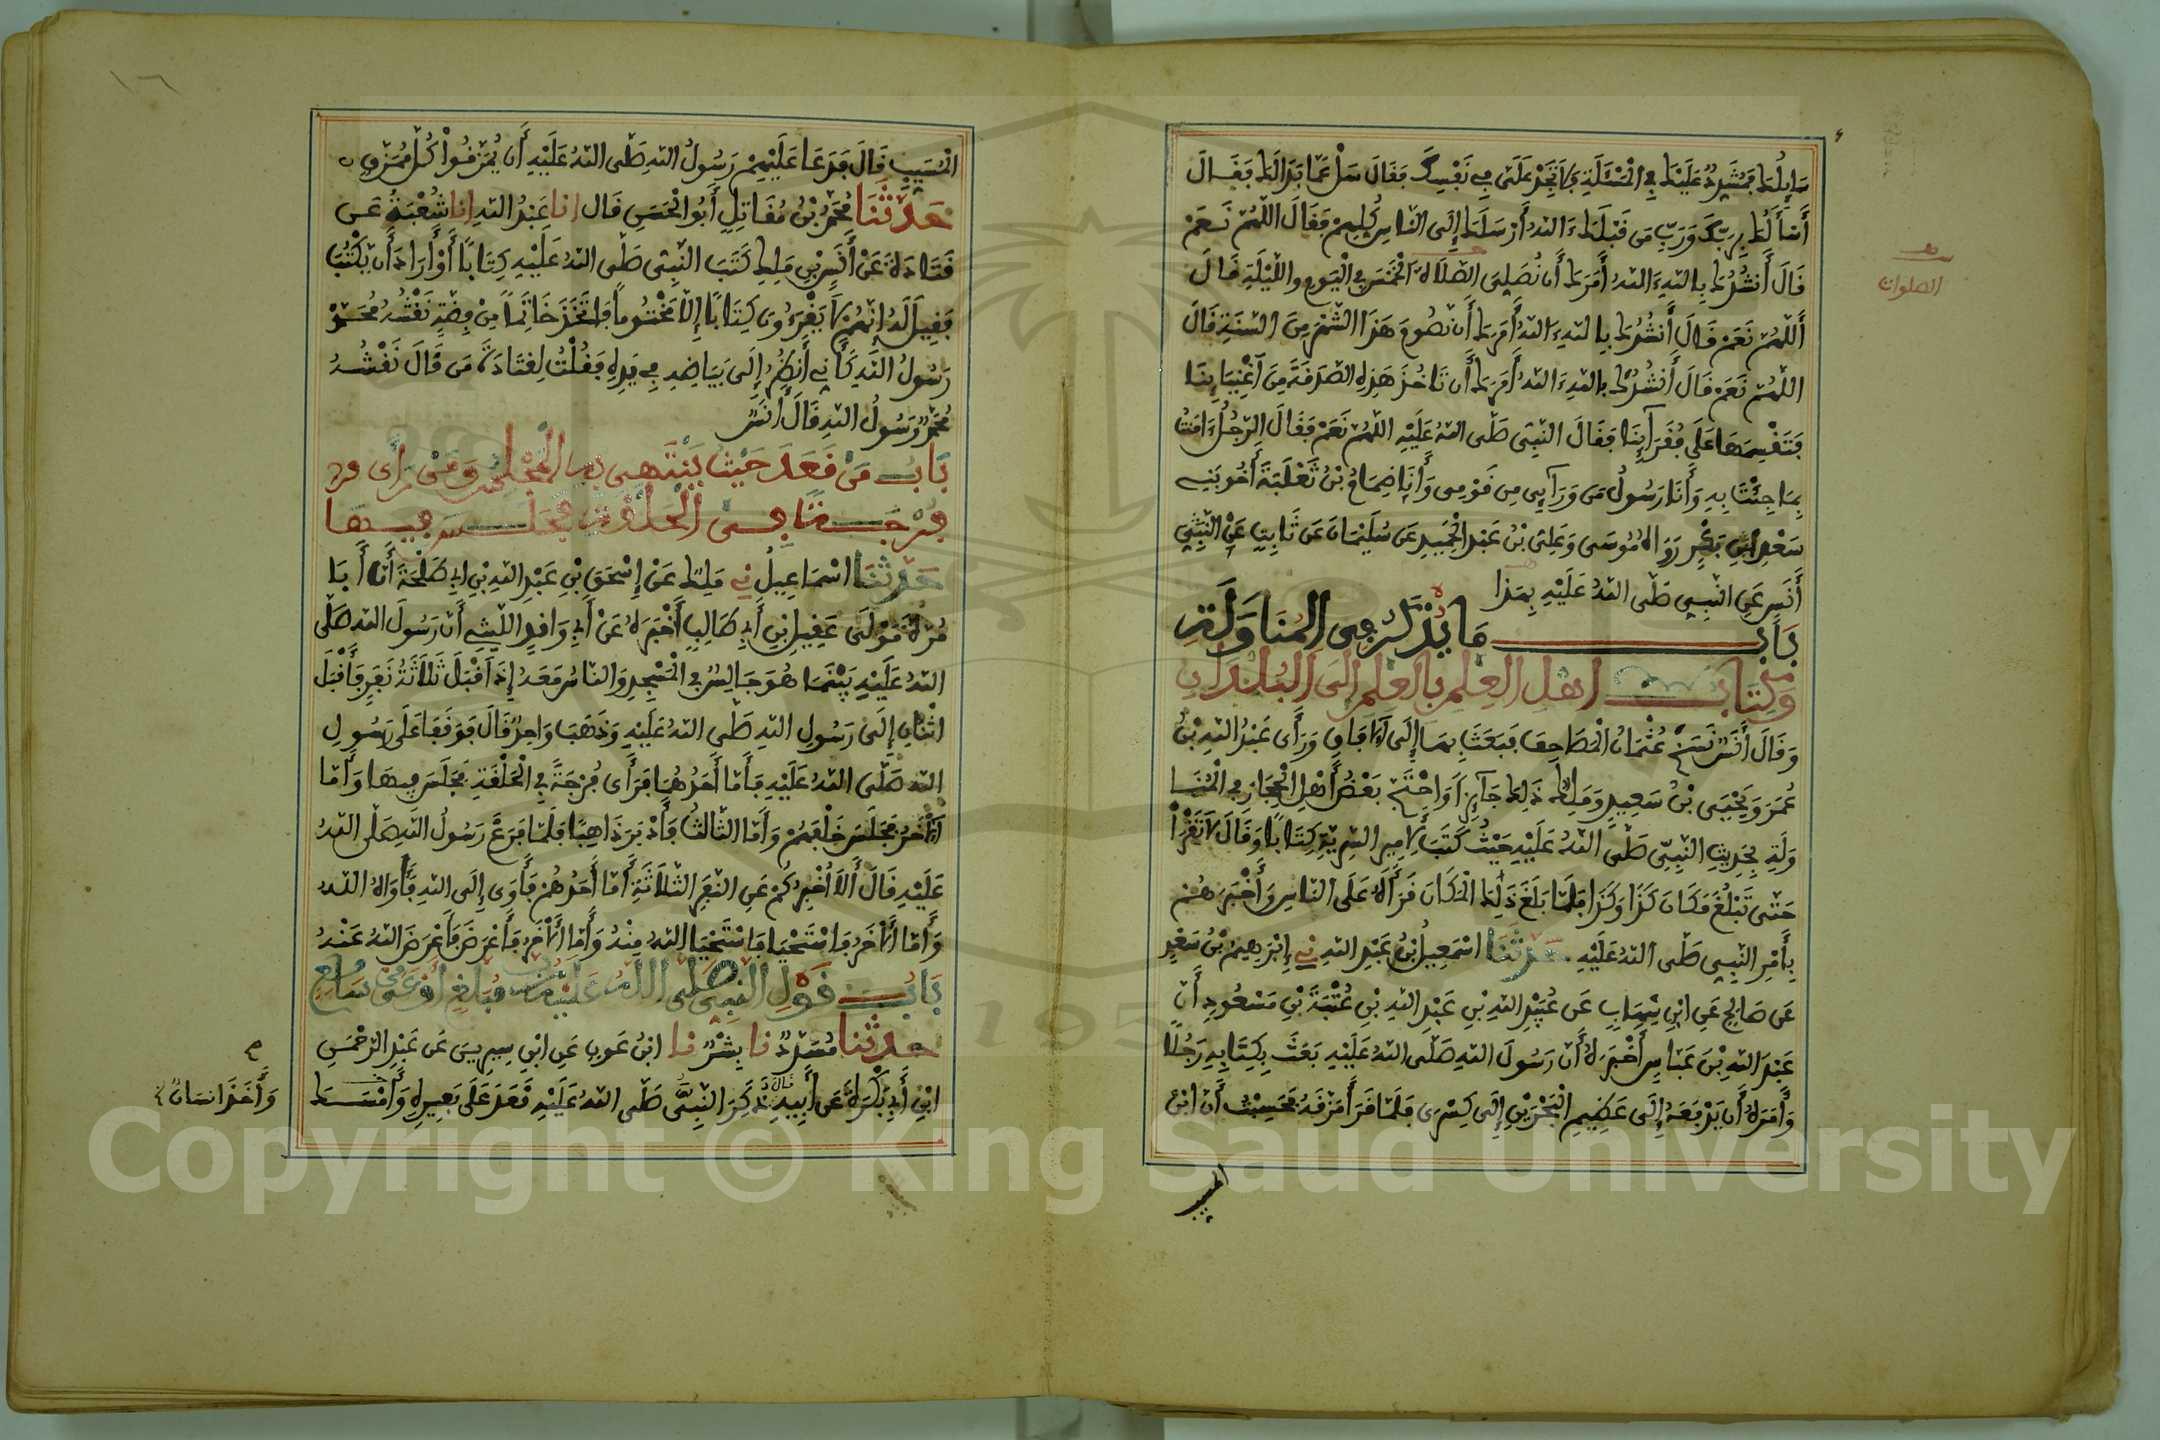 سَائِلُكَ فَمُشَدِّدٌ عَلَيْكَ فِي الْمَسْئَلَةِ فَلَا تَجِدْ عَلَيَّ فِي نَفْسِكَ فَقَالَ سَلْ عَمَّا بَدَا لَكَ فَقَالَ
أَسْأَلُكَ بِرَبِّكَ وَرَبِّ مَن قَبْلَكَ ءَاللهُ أَرْسَلَكَ إِلَى النَّاسِ كُلِّهِمْ فَقَالَ اللّهُمَّ نَعَمْ
قَالَ أَنشُدُكَ بِاللهِ ءَاللهُ أَمَرَكَ أَن نُصَلِّيَ الصَّلَاةَ الْخَمْسَ فِي الْيَوْمِ وَاللَّيْلَةِ قَالَ
الصلوات
أَللّهُمَّ نَعَمْ قَالَ أَنشُدُكَ بِاللهِ ءَاللهُ أَمَرَكَ أَن نَصُومَ هَذَا الشَّهْرَ مِنَ السَّنَةِ قَالَ
اللّهُمَّ نَعَمْ قَالَ أَنشُدُكَ بِاللهِ ءَاللهُ أَمَرَكَ أَن تَاخُذَ هَذِهِ الصَّدَقَةَ مِنَ اَغْنِيَائِنَا
فَتَقْسِمَهَا عَلَى فُقَرَائِنَا فَقَالَ النَّبِيُّ صَلَّى اللهُ عَلَيْهِ اللّهُمَّ نَعَمْ فَقَالَ الرَّجُلُ ءَامَنْتُ
بِمَا جِئْتَ بِهِ وَأَنَا رَسُولُ مَن وَرَاءِي مِن قَوْمِي وَأَنَا ضِمَامُ بْنُ ثَعْلَبَةَ أَخُو بَنِي
سَعْدِ ابْنِ بَكْرٍ رَوَاهُ مُوسَى وَعَلِيُّ بْنُ عَبْدِ الْحَمِيدِ عَن سُلَيْمَانَ عَن ثَابِتٍ عَنِ النَّبِيِّ
أَنَسٍ عَنِ النَّبِيِّ صَلَّى اللهُ عَلَيْهِ بِهَذَا
بَابُ مَا يُذْكَرُ فِي الْمُنَاوَلَةِ
وَكِتَابِ اهْلِ الْعِلْمِ بِالْعِلْمِ إِلَى الْبُلْدَانِ
وَقَالَ أَنَسٌ نَسَخَ عُثْمَانُ الْمَصَاحِفَ فَبَعَثَ بِهَا إِلَى الْآفَاقِ وَرَأَى عَبْدُ اللهِ بْنُ
عُمَرَ وَيَحْيَى بْنُ سَعِيدٍ وَمَالِكٌ ذَلِكَ جَائِزاً وَاحْتَجَّ بَعْضُ أَهْلِ الْحِجَازِ فِي الْمُنَا
وَلَةِ بِحَدِيثِ النَّبِيِّ صَلَّى اللهُ عَلَيْهِ حَيْثُ كَتَبَ لِأَمِيرِ السَّرِيَّةِ كِتَابًا وَقَالَ لَا تَقْرَأْ
حَتَّى تَبْلُغَ مَكَانَ كَذَا وَكَذَا فَلَمَّا بَلَغَ ذَلِكَ الْمَكَانَ قَرَأَهُ عَلَى النَّاسِ وَأَخْبَرَهُمْ
بِأَمْرِ النَّبِيِّ صَلَّى اللهُ عَلَيْهِ حَدَّثَنَا اسْمَعِيلُ بْنُ عَبْدِ اللهِ ني إِبْرَهِيمُ بْنُ سَعْدٍ
عَن صَالِحٍ عَنِ ابْنِ شِهَابٍ عَن عُبَيْدِ اللهِ بْنِ عَبْدِ اللهِ بْنِ عُتْبَةَ بْنِ مَسْعُودٍ أَنَّ
عَبْدَ اللهِ بْنَ عَبَّاسٍ أَخْبَرَهُ أَنَّ رَسُولَ اللهِ صَلَّى اللهُ عَلَيْهِ بَعَثَ بِكِتَابِهِ رَجُلًا
وَأَمَرَهُ أَن يَدْفَعَهُ إِلَى عَظِيمِ الْبَحْرَيْنِ إِلَى كِسْرَى فَلَمَّا قَرَأَ مَزَّقَهُ فَحَسِبْتُ أَنَّ ابْنَ
المسيب
١٦
الْمُسَيِّبِ قَالَ فَدَعَا عَلَيْهِمْ رَسُولُ اللهِ صَلَّى اللهُ عَلَيْهِ أَن يُمَزَّقُواْ كُلَّ مُمَزَّقٍ
حَدَّثَنَا مُحَمَّدُ بْنُ مُقَاتِلٍ أَبُو الْحَسَنِ قَالَ انا عَبْدُ اللهِ انا شُعْبَةُ عَن
قَتَادَةَ عَنْ أَنَسِ بْنِ مَالِكٍ كَتَبَ النَّبِيُّ صَلَّى اللهُ عَلَيْهِ كِتَابًا أَوْ أَرَادَ أَن يَكْتُبَ
فَقِيلَ لَهُ إِنَّهُمْ لَا يَقْرَءُونَ كِتَابًا إِلَّا مَخْتُوماً فَاتَّخَذَ خَاتِماً مِنْ فِضَّةٍ نَقْشُهُ مُحَمَّدٌ
رَسُولُ اللهِ كَأَنِّي أَنظُرُ إِلَى بَيَاضِهِ فِي يَدِهِ فَقُلْتُ لِقَتَادَةَ مَن قَالَ نَقْشُهُ
مُحَمَّدٌ رَسُولُ اللهِ قَالَ أَنَسٌ
بَابُ مَن قَعَدَ حَيْثُ يَنْتَهِي بِهِ الْمَجْلِسُ وَمَنْ رَأَى
فُرْجَةً فِي الْحَلْقَةِ فَجَلَسَ فِيهَا
حَدَّثَنَا اسْمَاعِيلُ ني مَالِكٌ عَنْ إِسْحَقَ بْنِ عَبْدِ اللهِ بْنِ أَبِي طَلْحَةَ أَنَّ أَبَا
مُرَّةَ مَوْلَى عَقِيلِ بْنِ أَبِي طَالِبٍ أَخْبَرَهُ عَنْ أَبِي وَاقِدٍ اللَّيْثِيِّ أَنَّ رَسُولَ اللهِ صَلَّى
اللهُ عَلَيْهِ بَيْنَمَا هُوَ جَالِسٌ فِي الْمَسْجِدِ وَالنَّاسُ مَعَهُ إِذَ اَقْبَلَ ثَلَاثَةُ نَفَرٍ فَأَقْبَلَ
اثْنَانِ إِلَى رَسُولِ اللهِ صَلَّى اللهُ عَلَيْهِ وَذَهَبَ وَاحِدٌ قَالَ فَوَقَفَا عَلَى رَسُولِ
اللهِ صَلَّى اللهُ عَلَيْهِ فَأَمَّا أَحَدُهُمَا فَرَأَى فُرْجَةً فِي الْحَلْقَةِ فَجَلَسَ فِيهَا وَأَمَّا
الْآخَرُ فَجَلَسَ خَلْفَهُمْ وَأَمَّا الثَّالِثُ فَأَدْبَرَ ذَاهِبًا فَلَمَّا فَرَغَ رَسُولُ اللهِ صَلَّى اللهُ
عَلَيْهِ قَالَ أَلَا أُخْبِرُكُمْ عَنِ النَّفَرِ الثَّلَاثَةِ أَمَّا أَحَدُهُمْ فَأَوَى إِلَى اللهِ فَآوَاهُ اللهُ
وَأَمَّا الْآخَرُ فَاسْتَحْيَا فَاسْتَحْيَا اللهُ مِنْهُ وَأَمَّا الْآخَرُ فَأَعْرَضَ فَأَعْرَضَ اللهُ عَنْهُ
بَابُ قَوْلِ النَّبِيِّ صَلَّى اللهُ عَلَيْهِ رُبَّ مُبَلَّغٍ أَوْعَى مِن سَامِعٍ
حَدَّثَنَا مُسَدَّدٌ نا بِشْرٌ نا ابْنُ عَوْنٍ عَنِ ابْنِ سِيرِينَ عَن عَبْدِ الرَّحْمَنِ
ابْنِ أَبِي بَكْرَةَ عَن أَبِيهِ قال ذَكَرَ النَّبِيَّ صَلَّى اللهُ عَلَيْهِ قَعَدَ عَلَى بَعِيرِهِ وَأَمْسَكَ
وَأَخَذَ انسَانٌ
Copyright © King Saud University